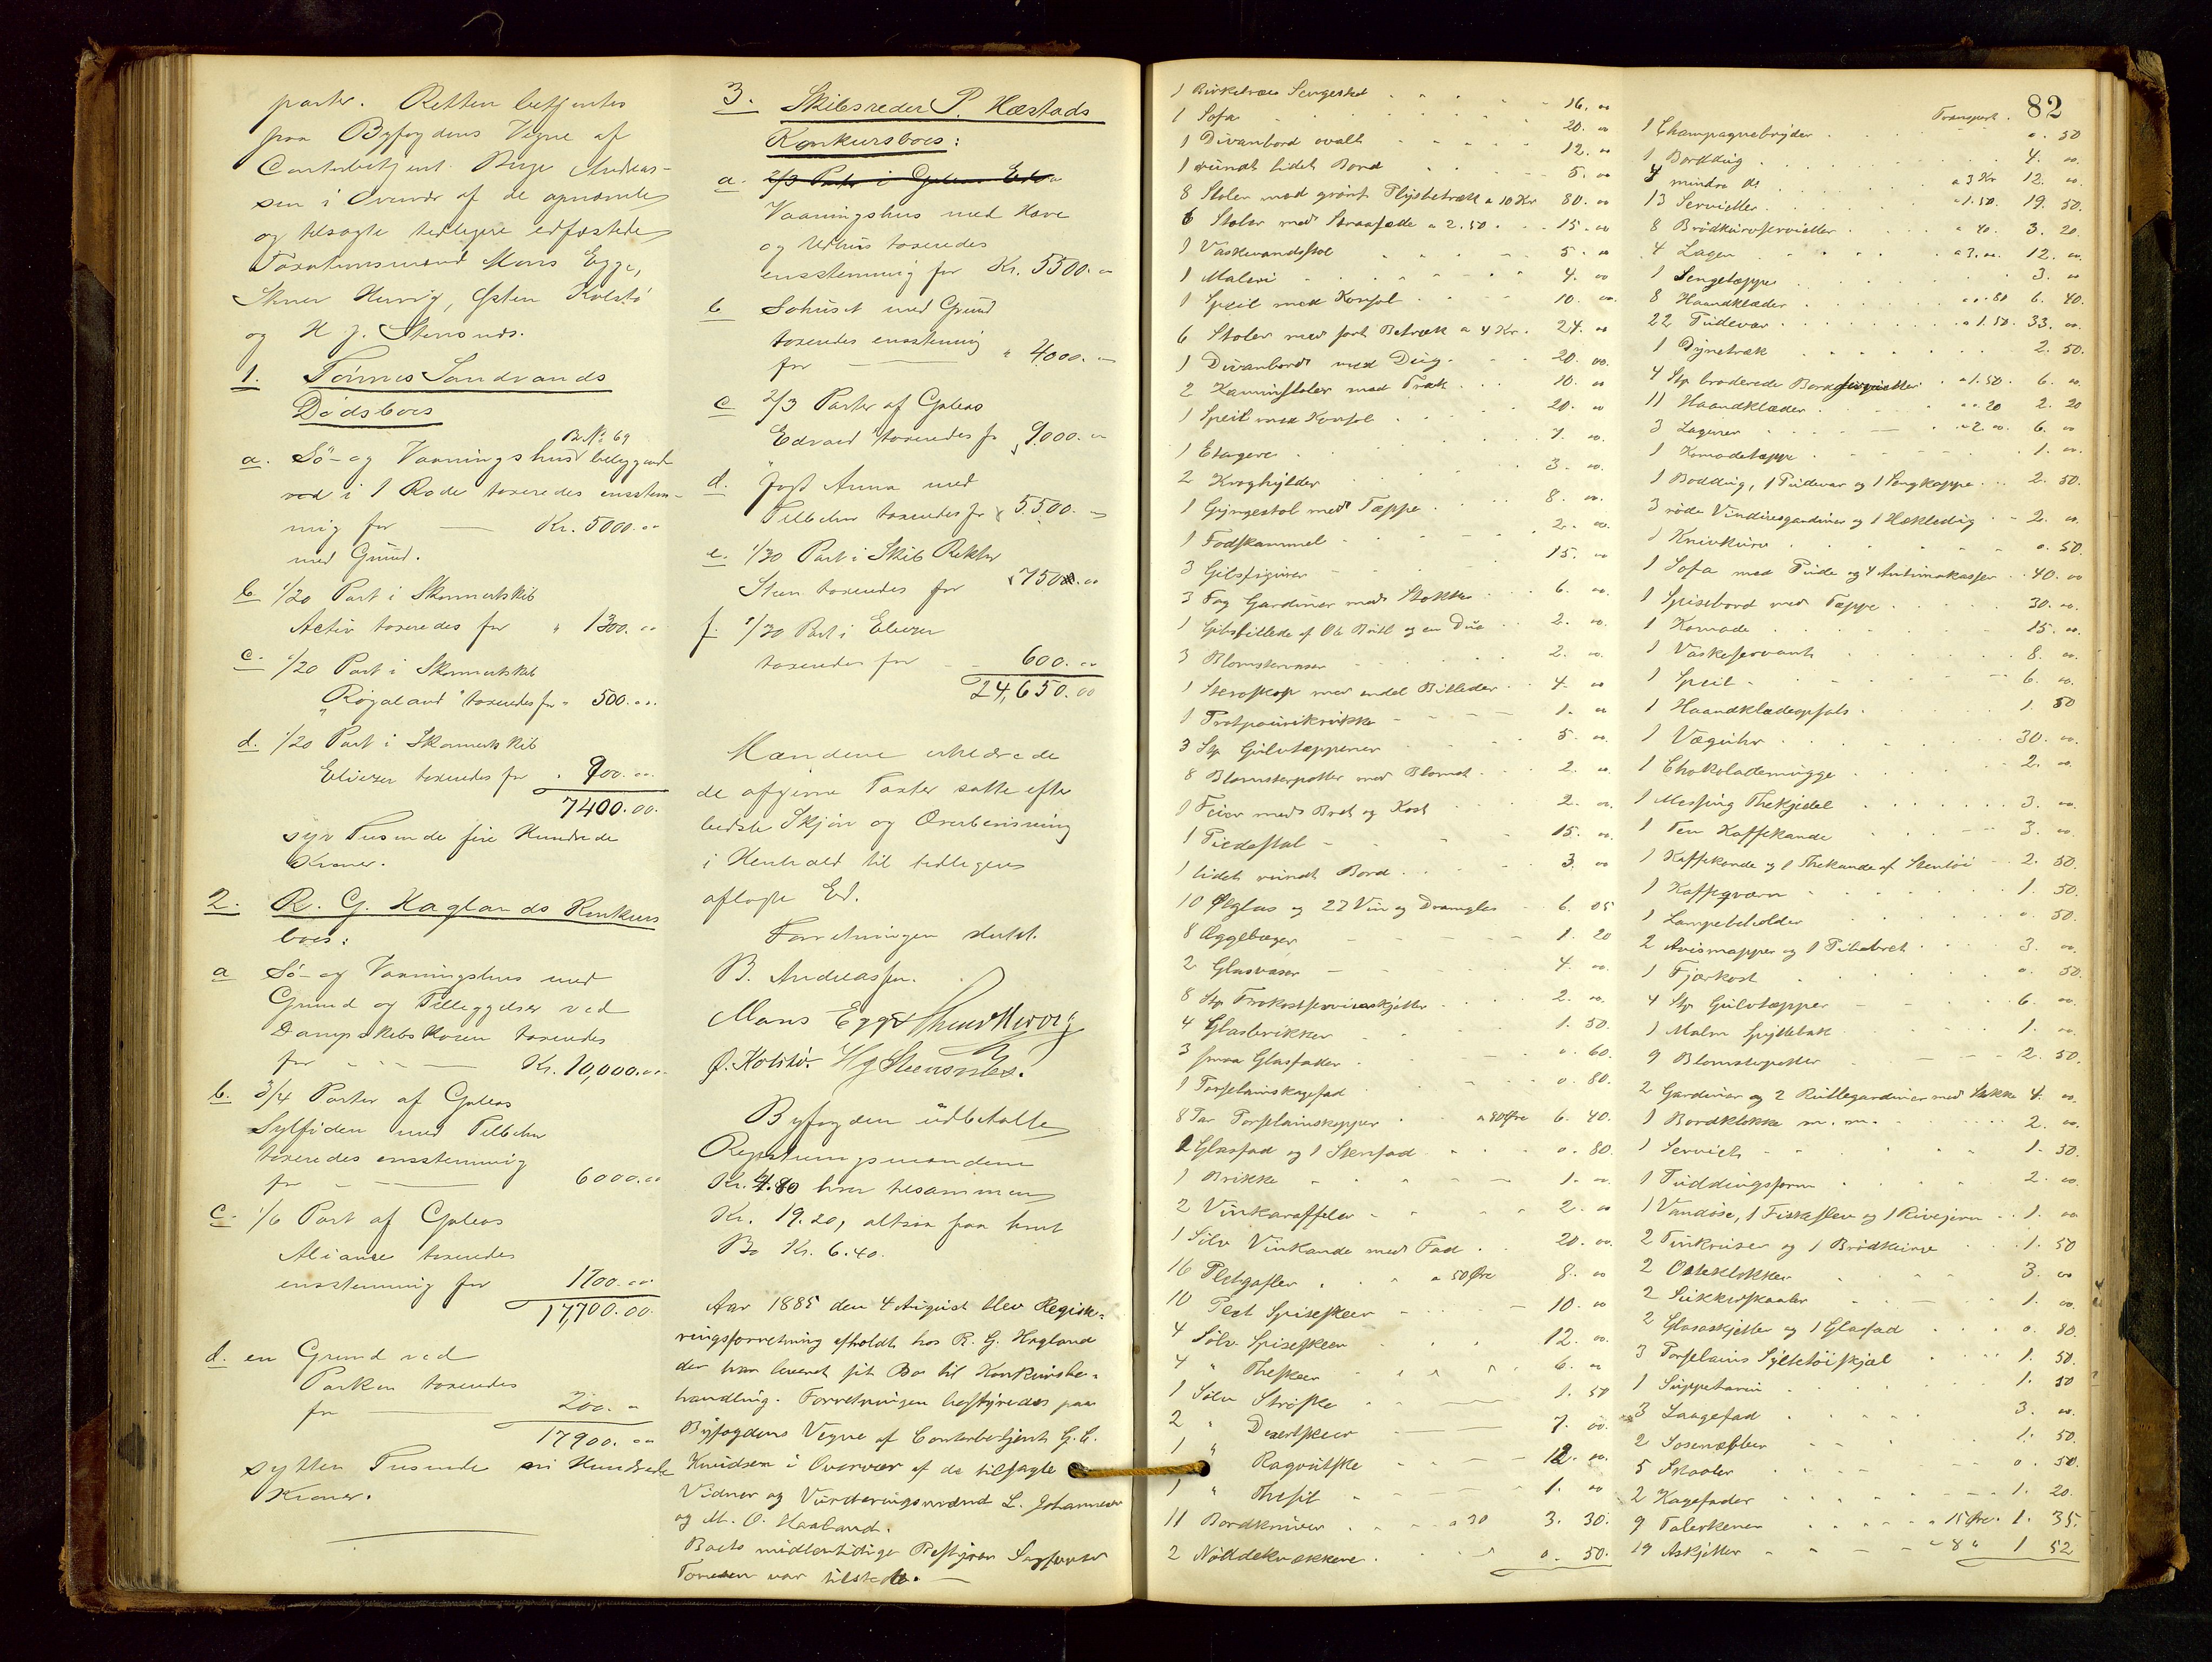 parter. Retten betjentes
paa Byfogdens Vegne af
Contorbetjent Birge Andreas-
sen i Overvær af de opnævnte
og tilsagte tidligere edfæstede
Taxationsmænd Mons Egge,
Skner Hervig, Østen Kolstø
og H. J. Stensnes.
1. Tønnes Sandvands
Dødsboes
B. No 69
a. Sø- og Vaaningshus beliggende
ved i 1 Rode taxeredes enstem-
mig for — Kr. 5000.00
med Grund.
b. 1/20 Part i Skonnertskib
Activ taxeredes for " 1300.00
c. 1/20 Part i Skonnertskib
"Rogaland" taxeredes for " 500.00.
d. 1/20 Part i Skonnertskib
Eliezer taxeredes for " 900.00.
7400.00.
syv Tusinde fire Hundrede
Kroner.
2. R. G. Haglands Konkurs
boes:
a Sø- og Vaaningshus med
Grund og Tilleggelser ved
Dampskibskaien taxeredes
for - - - Kr. 10,000.00.
b. 3/4 Parter af Galeas
Sylfiden med Tilbehør
taxeredes enstemmig
for - — 6000.00
c. 1/6 Part af Galeas
Aliance taxeredes
enstemmig for 1700.00
17,700.00.
d. en Grund ved
Parken taxeredes
for — 200. "
17900.00
sytten Tusinde ni Hundrede
Kroner.
3. Skibsreder P. Hæstads
Konkursboes:
a. 2/3 Parter i Galeas Edva
Vaaningshus med Have
og Udhus taxeredes
enstemmig for Kr. 5500.00
b Søhuset med Grund
taxeredes enstemmig
for — " 4000.—
c 2/3 Parter af Galeas
Edvard taxeredes for " 9000.00
d. Jagt Anna med
Tilbehør taxeredes for " 5.500.—
e. 1/30 Part i Skib Rektor
Steen taxeredes for " 750.00
f. 1/30 Part i Eliezer
taxeredes for - - 600.00
24,650.00
Mændene erklærede
de afgivne Taxter satte efter
bedste Skjøn og Overbevisning
i Henhold til tidligere
aflagte Ed.
Forretningen sluttet.
B. Andreassen.
Mons Egge Skner Hervig
Ø. Kolstø. H J Steensnes.
Byfogden udbetalte
Registreringsmændene
Kr. 4.80 hver tilsammen
Kr. 19.20, altsaa paa hvert
Bo Kr. 6.40.
Aar 1885 den 4 August blev Registe-
ringsforretning afholdt hos R. G. Hagland
der har leveret sit Bo til Konkursbe-
handling. Forretningen bestyredes paa
Byfogdens Vegne af Contorbetjent G. C.
Knudsen i Overvær af de tilsagte
Vidner og Vurderingsmænd L. Johannesen
og M. O. Haaland.
Boets midlertidige Bestyrer Sagfører
Toresen var tilstede. —
1 Birketræes Sengested - - - 16. 00
1 Sofa - - - 20. 00
1 Divanbord ovalt - - - 12. 00
1 rundt lidet Bord - - - 5. 00
8 Stoler med grønt Plydsbetræk a 10 Kr 80. 00
6 Stoler med Straasæde a 2.50 - - 15. 00
1 Vaskevandsstol - - - 5. 00
1 Maleri - - - 4. 00
1 Speil med Konsol - - - 10. 00
6 Stoler med sort Betræk a 4 Kr. 24. 00
1 Divanbord med Dug - - 20. 00.
2 Kaminstoler med Træk - - 10. 00
1 Speil med Konsol - - 20. 00
1 Etagere - - - 7. 00.
2 Kroghylder - - - 3. 00.
1 Gyngestol med Tæppe - - 8. 00.
1 Fodskammel - - - 2. 00.
3 Gibsfigurer - - - 15. 00
3 Fag Gardiner med Stokke - - 6. 00.
1 Gibsbillede af Ole Bull og en Due - - 2. 00.
3 Blomstervaser - - - 2. 00.
1 Steroskop med endel Billeder - - 4. 00
1 Potpourikrukke - - - 1. 00
3 Stk Gulvtæpper - - - 5. 00.
8 Blomsterpotter med Blomst - - 2. 00
1 Feier med Bret og Kost - - 2. 00.
1 Piedestal - - - 15. 00.
1 lidet rundt Bord - - - 3. 00
10 Ølglas og 27 Vin og Dramglas - 6. 05
8 Æggebæger - - - 1. 20
2 Glasvaser - - - 4. 00.
8 Stk Frokostservietskjeller - - 2. 00.
4 Glasbrikker - - - 1. 50.
3 smaa Glasfader - - - 0. 60.
1 Porselainskagefad - - - 0. 80.
8 Par Porselainskopper - - a 80 Øre 6. 40.
2 Glasfad og 1 Stenfad - - - 0. 80.
1 Brikke - - - 1. 00.
2 Vinkarafler - - - 2. 00
1 Sølv Vinkande med Fad - - 20. 00.
16 Pletgafler - - a 50 Øre 8. 00
10 Plet Spiseskeer - - - 10. 00
4 Sølv Spiseskeer - - - 12. 00.
4 " Theskeer - - - 6. 00
1 Sølv Strøske - - - 1. 50
2 " Desertskeer - - - 7. 00.
1 " Ragoutske - - - 12. 00.
1 " Thesil - - - 1. 00
11 Bordkniver - - a 30 3. 30.
2 Nøddeknækkere - - - 0. 50.
82
Transport.
1 Champagnebryder - - - 0. 50
1 Borddug - - - 4. 00.
4 mindre do - - - a 3 Kr 12. 00.
13 Servietter - - - a 1.50. 19. 50.
8 Brødkurvservietter - - - a 40. 3. 20.
4 Lagen - - - a 3.00. 12. 00.
1 Sengetæppe - - - 3. 00
8 Haandklæder - - - a 0.80 6. 40.
22 Pudevar - - - a 1.50. 33. 00.
1 Dynetræk - - - 2. 50.
4 Stk broderede Bordservietter - - a 1.50. 6. 00.
11 Haandklæder - - - a 0.20 2. 20
3 Lagener - - - a 2.00. 6. 00
1 Komodetæppe - - - 1. 00.
1 Borddug, 1 Pudevar og 1 Sengkappe - - 2. 50.
3 røde Vinduesgardiner og 1 Hækledug - - 2. 00.
1 Knivkurv - - - 0. 50.
1 Sofa med Pude og 4 Antimakasser - - 40. 00
1 Spisebord med Tæppe - - - 30. 00.
1 Komode - - - 15. 00.
1 Vaskeservant - - - 8. 00.
1 Speil - - - 6. 00.
1 Haandklædeopsats - - - 1. 50
1 Væguhr - - - 30. 00.
1 Chokolademugge - - - 2. 00.
1 Messing Thekjedel - - - 3. 00.
1 Ten Kaffekande - - - 3. 00.
1 Kaffekande og 1 Thekande af Stentøi - - 2. 50.
1 Kaffeqværn - - - 1. 50.
1 Lampebeholder - - - 0. 50.
2 Avismapper og 1 Pibebret - - - 3. 00.
1 Fjærkost - - - 0. 50.
4 Stk Gulvtæpper - - - 6. 00.
1 Malm Spyttebak - - - 1. 00.
9 Blomsterpotter - - - 2. 50.
2 Gardiner og 2 Rullegardiner med Stokke 4. 00.
1 Bordklokke m. m. - - - 2. 00.
1 Serviets - - - 1. 50.
1 Puddingsform - - - 2. 00.
1 Vandøse, 1 Fiskeslev og 1 Rivejern - - 1. 00
2 Tinkruser og 1 Brødkurv - - 1. 50
2 Osteklokker - - - 3. 00
2 Sukkerskaaler - - - 1. 00.
2 Glasaskjetter og 1 Glasfad - - - 0. 80.
3 Porselains Syltetøiskjæl - - - 1. 50.
1 Suppeterin - - - 1. 50
3 Laagefad - - - 3. 00.
2 Sosenæbber - - - 1. 50.
5 Skaaler - - - 0. 50.
2 Kagefader - - - 1. 20.
9 Talerkener - - - a 15 Øre. 1. 35.
19 Askjetter - - - a 8 " 1 52